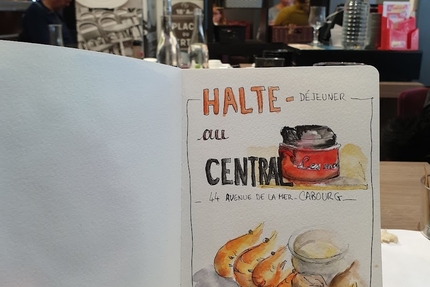 HALTE - DÉJEUNER
au
CENTRAL
44 AVENUE DE LA MER - CABOURG
PLAC